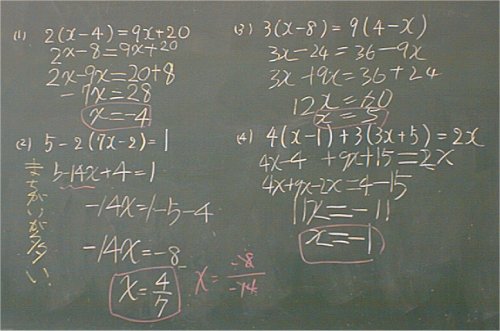 (1) 2(x-4)=9x+20
2x-8=9x+20
2x-9x=20+8
-7x=28
x=-4
(2) 5-2(7x-2)=1
5-14x+4=1
-14x=1-5-4
-14x=-8
x=4/7
x=-8/-14
まちがいが多い
(3) 3(x-8)=9(4-x)
3x-24=36-9x
3x+9x=36+24
12x=60
x=5
(4) 4(x-1)+3(3x+5)=2x
4x-4+9x+15=2x
4x+9x-2x=4-15
11x=-11
x=-1